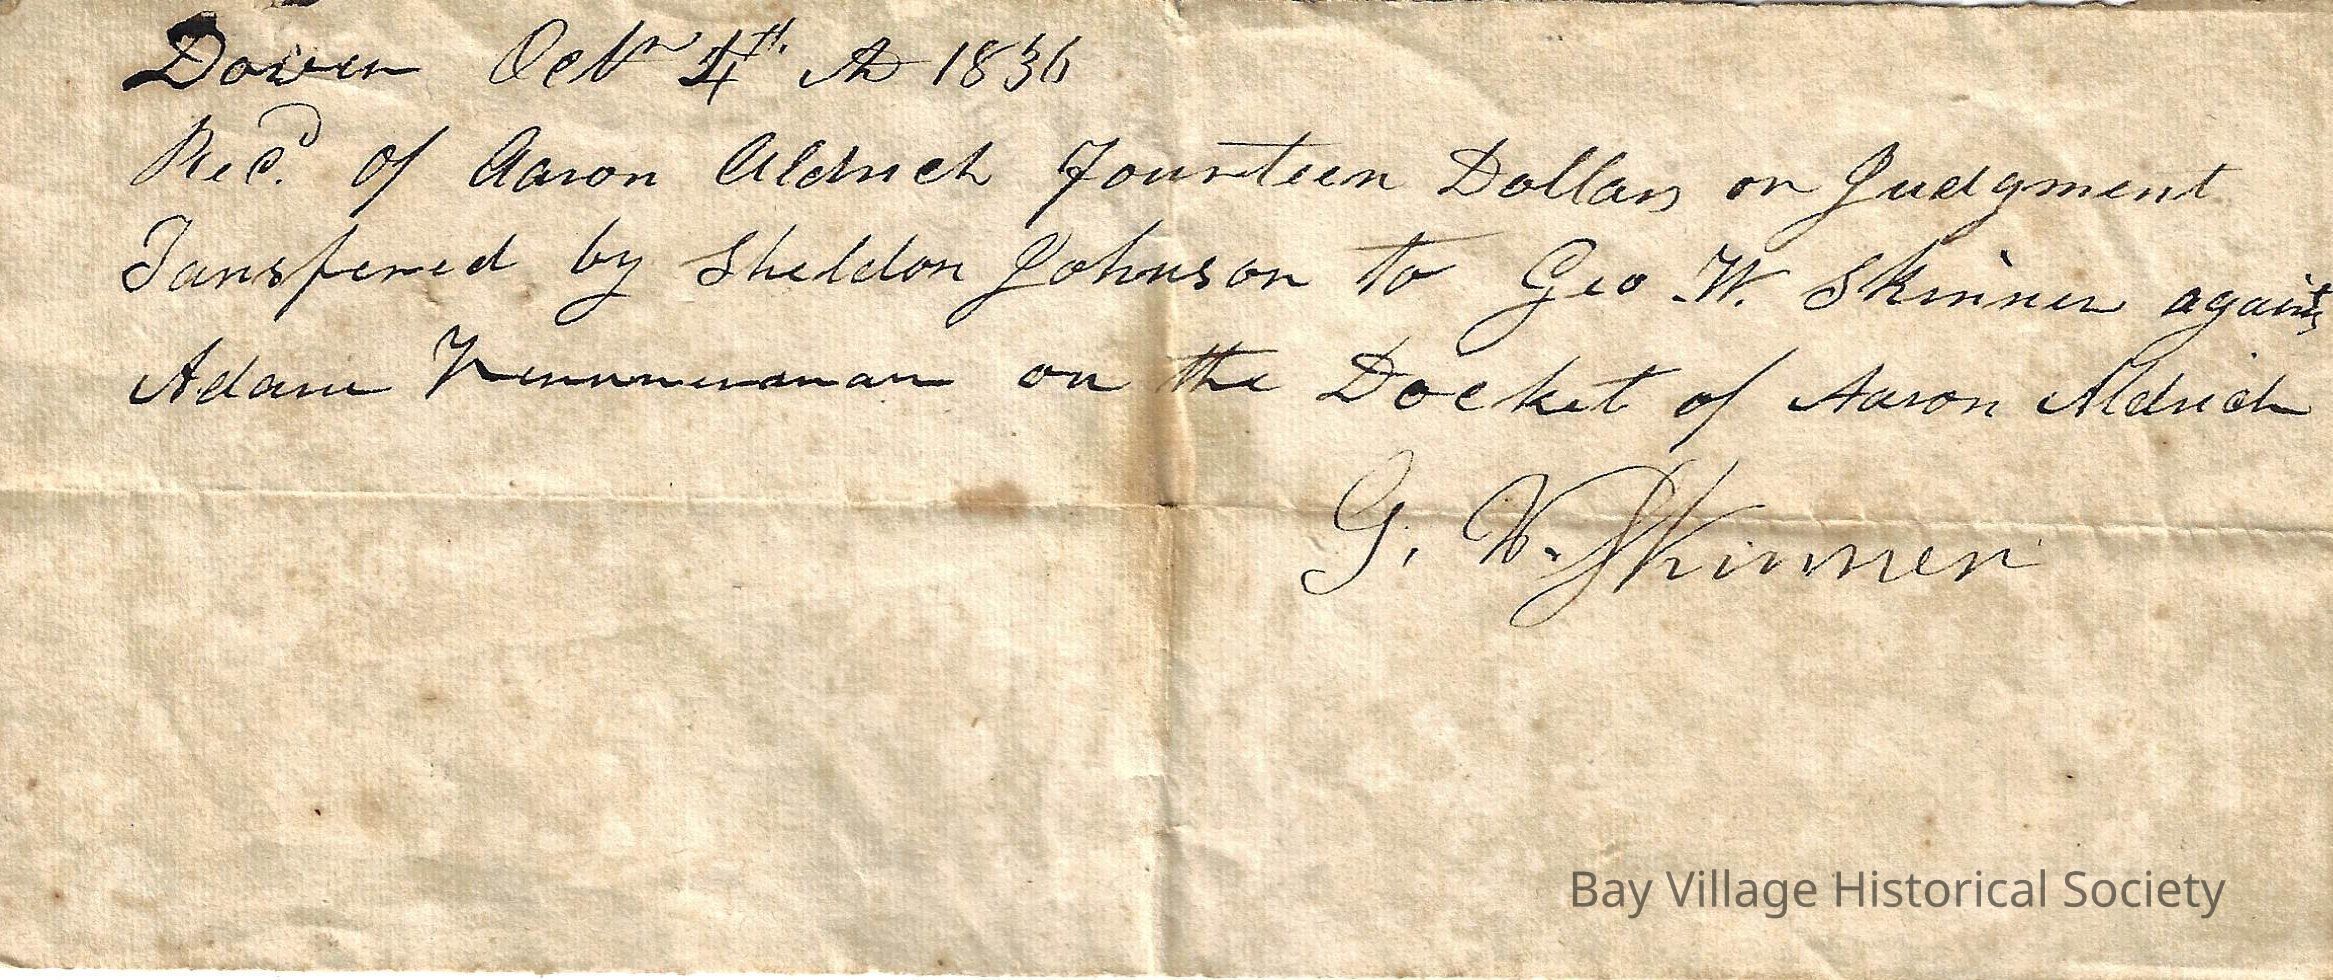 Dover Octr 4th AD 1836
Recd. of Aaron Aldrich Fourteen Dollars on Judgment
Tansfered by Sheldon Johnson to Geo W. Skinner against
Adam on the Docket of Aaron Aldrich
G. W. Skinner
Bay Village Historical Society